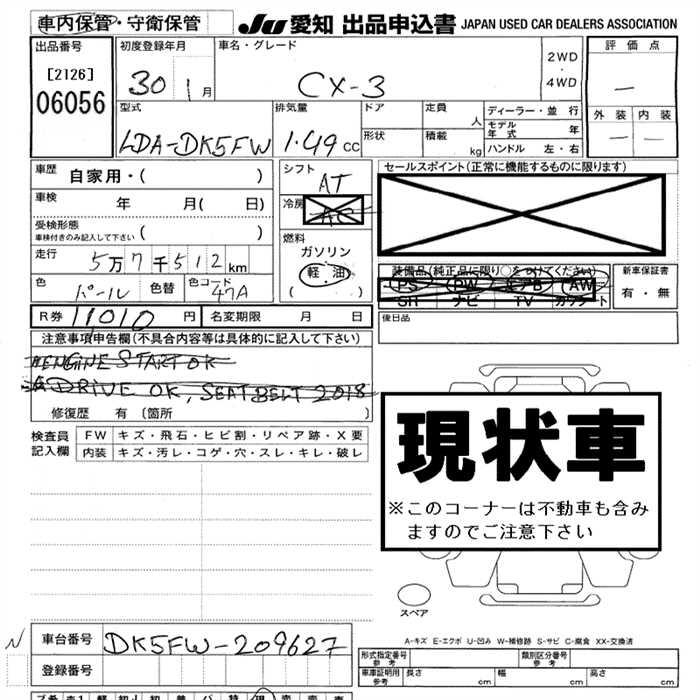 車内保管・守衛保管
JU 愛知 出品申込書 JAPAN USED CAR DEALERS ASSOCIATION
出品番号
[2126]
06056
初度登録年月
30 1月
車名・グレード
CX-3
2WD
・
4WD
評価点
—
外装 内装
— —
型式
LDA-DK5FW
排気量
1.49cc
ドア
形状
定員
人
積載
kg
ディーラー・並行
モデル年式 年
ハンドル 左・右
車歴 自家用・( )
車検 年 月( 日)
受検形態
車検付きのみ記入して下さい ( )
走行 5万7千512km
色 パール 色替 色コード 47A
シフト
AT
冷房
AC
燃料
ガソリン
軽油
( )
セールスポイント(正常に機能するものに限ります)
装備品(純正品に限り○をつけてください)
PS PW エアB AW
SR ナビ TV カワシート
新車保証書
有・無
後日品
R券 11,010円 名変期限 月 日
注意事項申告欄(不具合内容等は具体的に記入して下さい)
ENGINE START OK
DRIVE OK, SEAT BELT 2018
修復歴 有〔箇所 〕
検査員
記入欄
FW キズ・飛石・ヒビ割・リペア跡・X要
内装 キズ・汚レ・コゲ・穴・スレ・キレ・破レ
現状車
※このコーナーは不動車も含み
ますのでご注意下さい
スペア
A-キズ E-エクボ U-凹み W-補修跡 S-サビ C-腐食 XX-交換済
N
車台番号 DK5FW-209627
登録番号
形式指定番号
参考
類別区分番号
参考
車庫証明用
参考
長さ cm 幅 cm 高さ cm